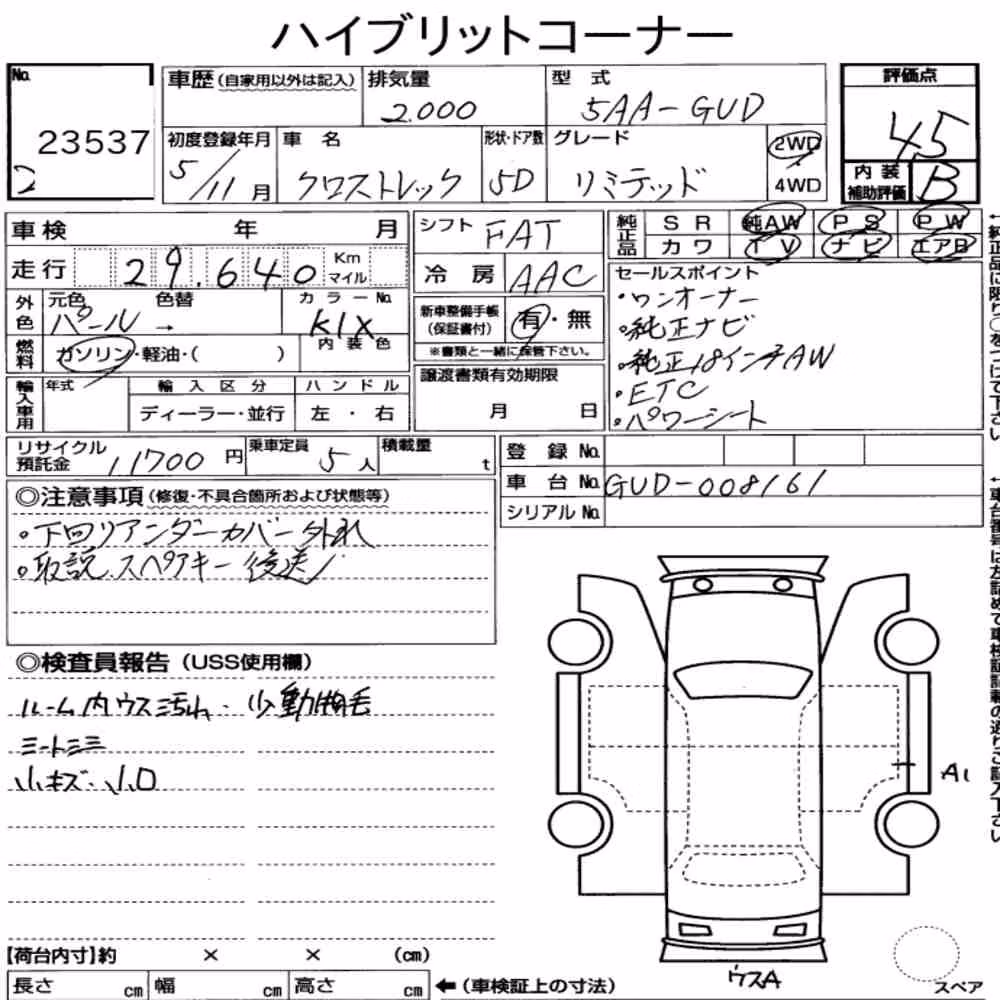 ハイブリットコーナー
No. 23537
2
車歴(自家用以外は記入)
排気量 2.000
型式 5AA-GUD
評価点 4.5
初度登録年月 5/11月
車名 クロストレック
形状・ドア数 5D
グレード リミテッド
2WD
4WD
内装補助評価 B
車検 年 月
走行 29.640 Km マイル
外色 元色 パール → 色替
カラーNo. K1X
内装色
燃料 ガソリン・軽油・( )
輸入車用 年式
輸入区分 ディーラー・並行
ハンドル 左・右
シフト FAT
冷房 AAC
新車整備手帳(保証書付) 有・無
※書類と一緒に保管下さい。
譲渡書類有効期限
月 日
純正品 SR 純AW PS PW
カワ TV ナビ エアB
セールスポイント
・ワンオーナー
・純正ナビ
・純正18インチAW
・ETC
・パワーシート
リサイクル預託金 11700円
乗車定員 5人
積載量 t
登録No.
車台No. GUD-008161
シリアルNo.
◎注意事項(修復・不具合箇所および状態等)
・下回リアンダーカバー外れ
・取説、スペアキー後送
◎検査員報告(USS使用欄)
ルーム内ウス汚れ・少動物毛
シートシミ
小キズ・小凹
A1
ウスA
スペア
【荷台内寸】約 × × (cm)
長さ cm 幅 cm 高さ cm ←(車検証上の寸法)
←純正品に限り○をつけて下さい
←車台番号は左詰めで車検証記載の通りご記入下さい